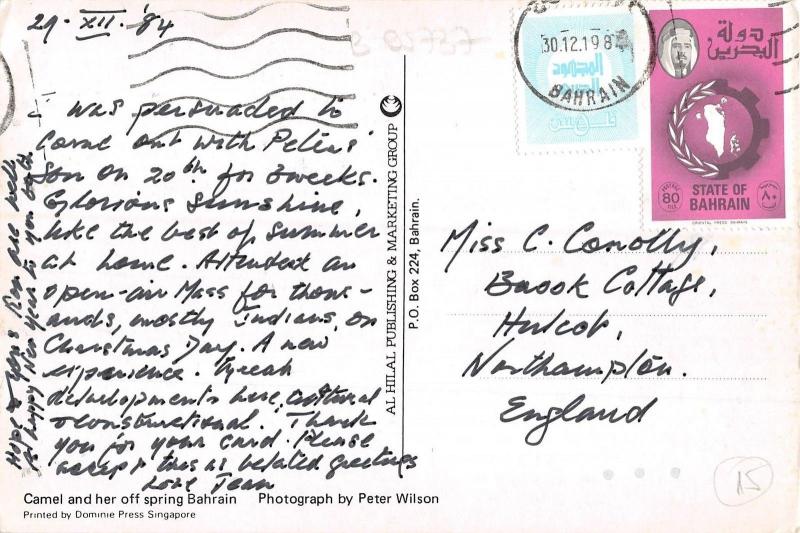 29. XII. '84
was persuaded to
come out with Peters'
Son on 20th for 3 weeks.
Glorious sunshine,
like the best of summer
at home. Attended an
open-air Mass for thous-
ands, mostly Indians, on
Christmas Day. A new
experience. Great
developments here, cultural
& constructional. Thank
you for your card. Please
accept this as belated greetings
Love Jean
Hope & yours are well
A happy New Year to you both
Camel and her off spring Bahrain Photograph by Peter Wilson
Printed by Dominie Press Singapore
AL HILAL PUBLISHING & MARKETING GROUP
P.O. Box 224, Bahrain.
30.12.198
BAHRAIN
المجهود
دولة
البحرين
POSTAGE
80
FILS
٨٠
STATE OF
BAHRAIN
ORIENTAL PRESS BAHRAIN
Miss C. Conolly,
Brook Cottage,
Hulcot,
Northampton.
England
15